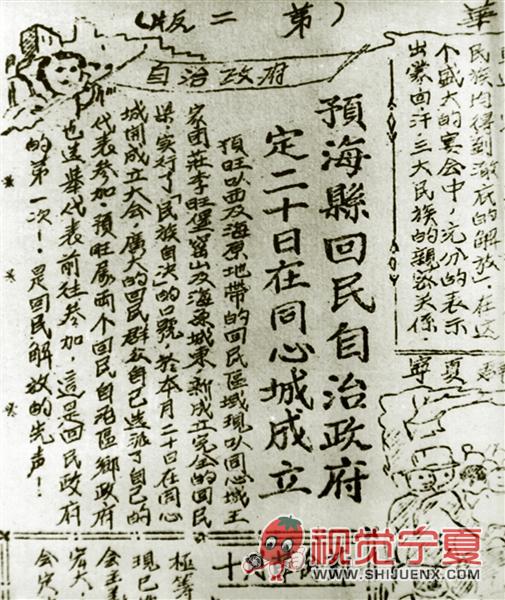 第二版
華
民族均得到澈底的解放」在这
个盛大的宴会中,充分的表示
出蒙回汗三大民族的親密关係.
寧夏
自治政府
預海縣回民自治政府
定二十日在同心城成立
預旺以西及海原地帶的回民區域現以同心城王
家团莊李旺堡窑山及海原城東,新成立完全的回民
实行了「民族自决」的口號,於本月二十日在同心
城開成立大会,廣大的回民群众自己选派了自己的
代表参加,預旺屬两个回民自治區鄉政府
也选舉代表前往参加,這是回民政府
的第一次!是回民解放的先声!
極等
現已
会主
大,
会
视觉宁夏
WWW.SHIJUENX.COM